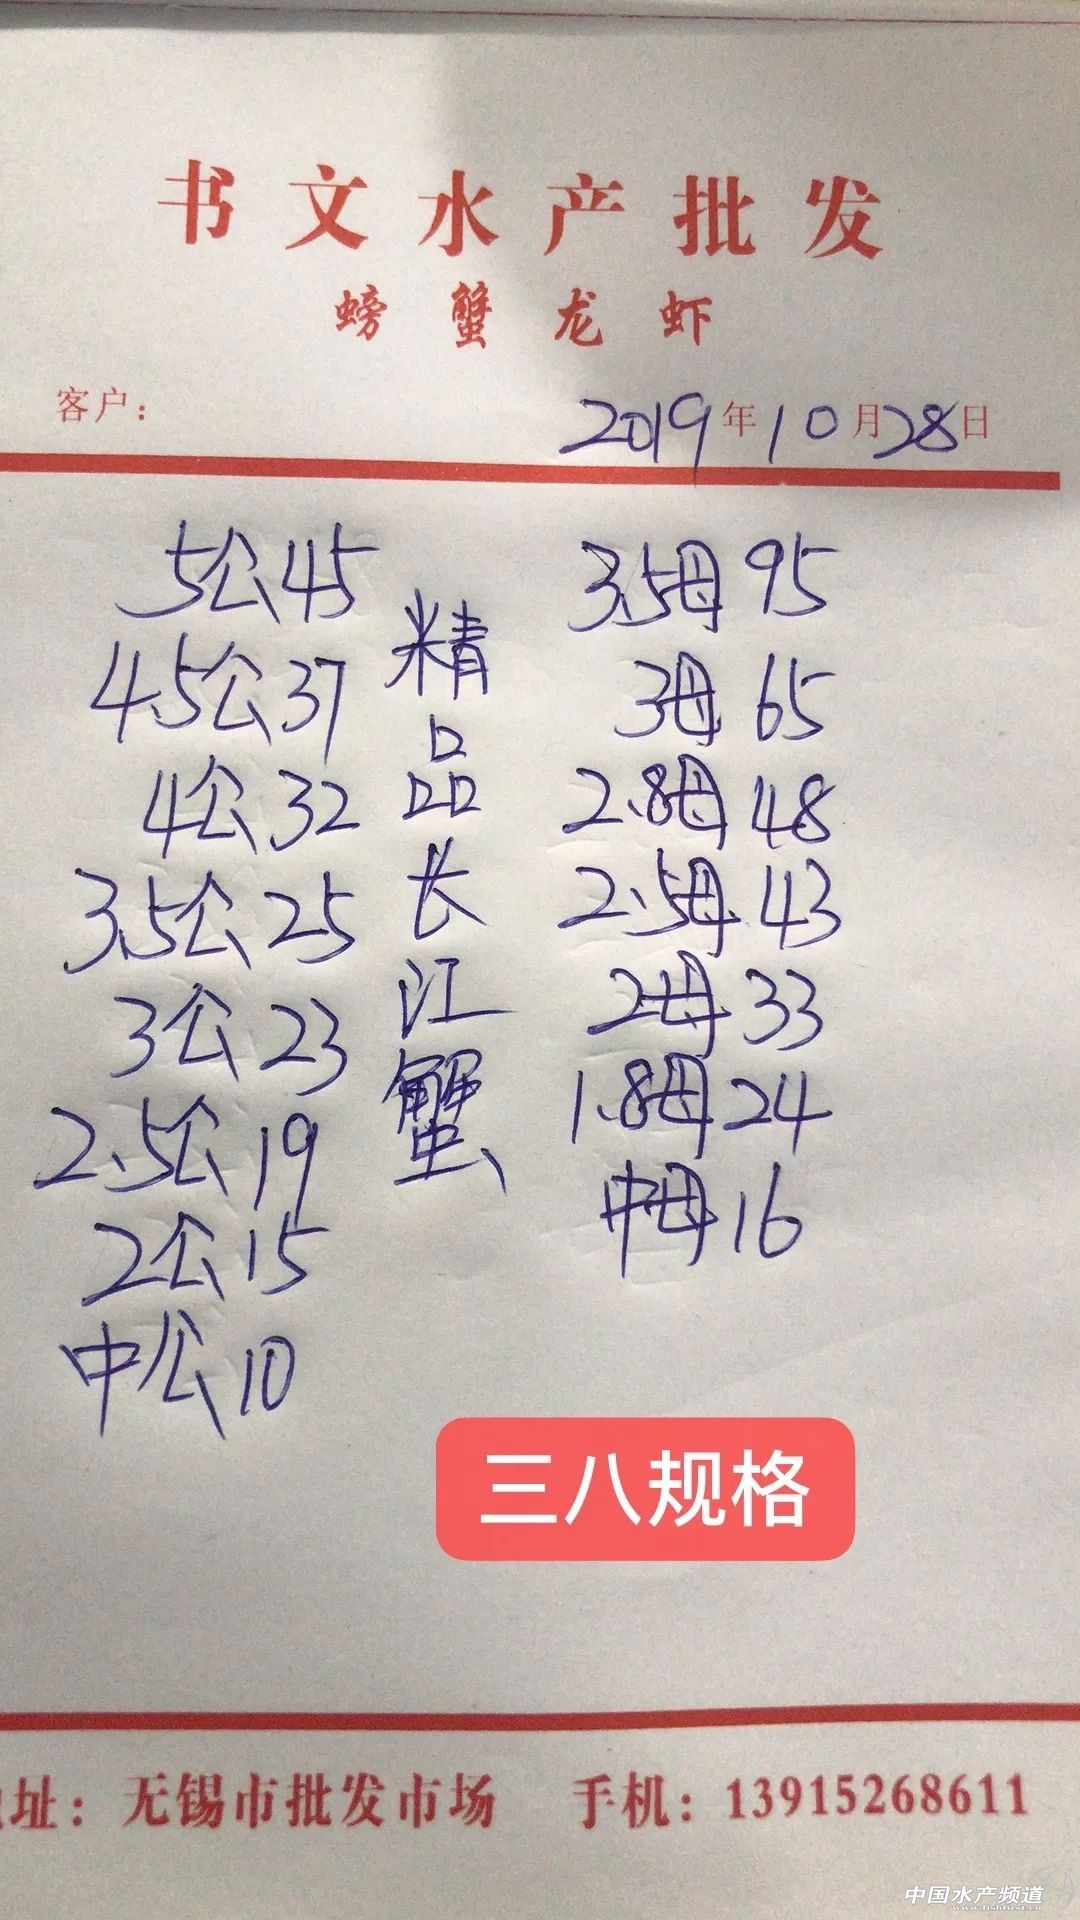 书文水产批发
螃蟹龙虾
客户：
2019年10月28日
5公45
4.5公37
4公32
3.5公25
3公23
2.5公19
2公15
中公10
精品长江蟹
3.5母95
3母65
2.8母48
2.5母43
2母33
1.8母24
中母16
三八规格
址：无锡市批发市场 手机：13915268611
中国水产频道
www.fishfirst.cn